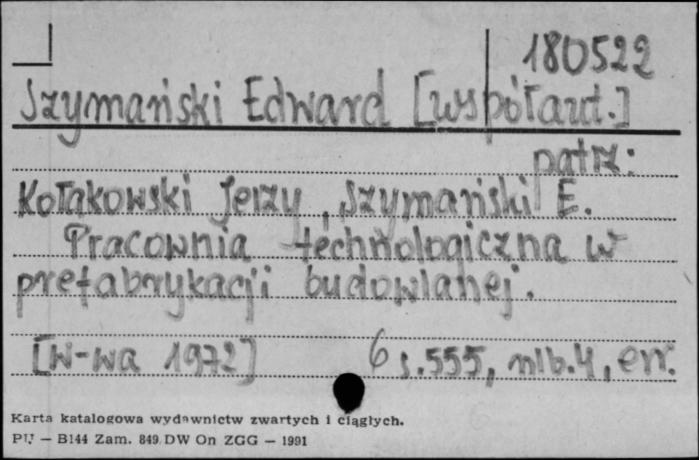 180522
Szymański Edward [współaut.]
patrz:
Kołakowski Jerzy, Szymański E.
Pracownia technologiczna w
prefabrykacji budowlanej.
[W-wa 1972] 6 s. 555, nlb. 4, err.
Karta katalogowa wydawnictw zwartych i ciągłych.
PU — B144 Zam. 849 DW On ZGG — 1991